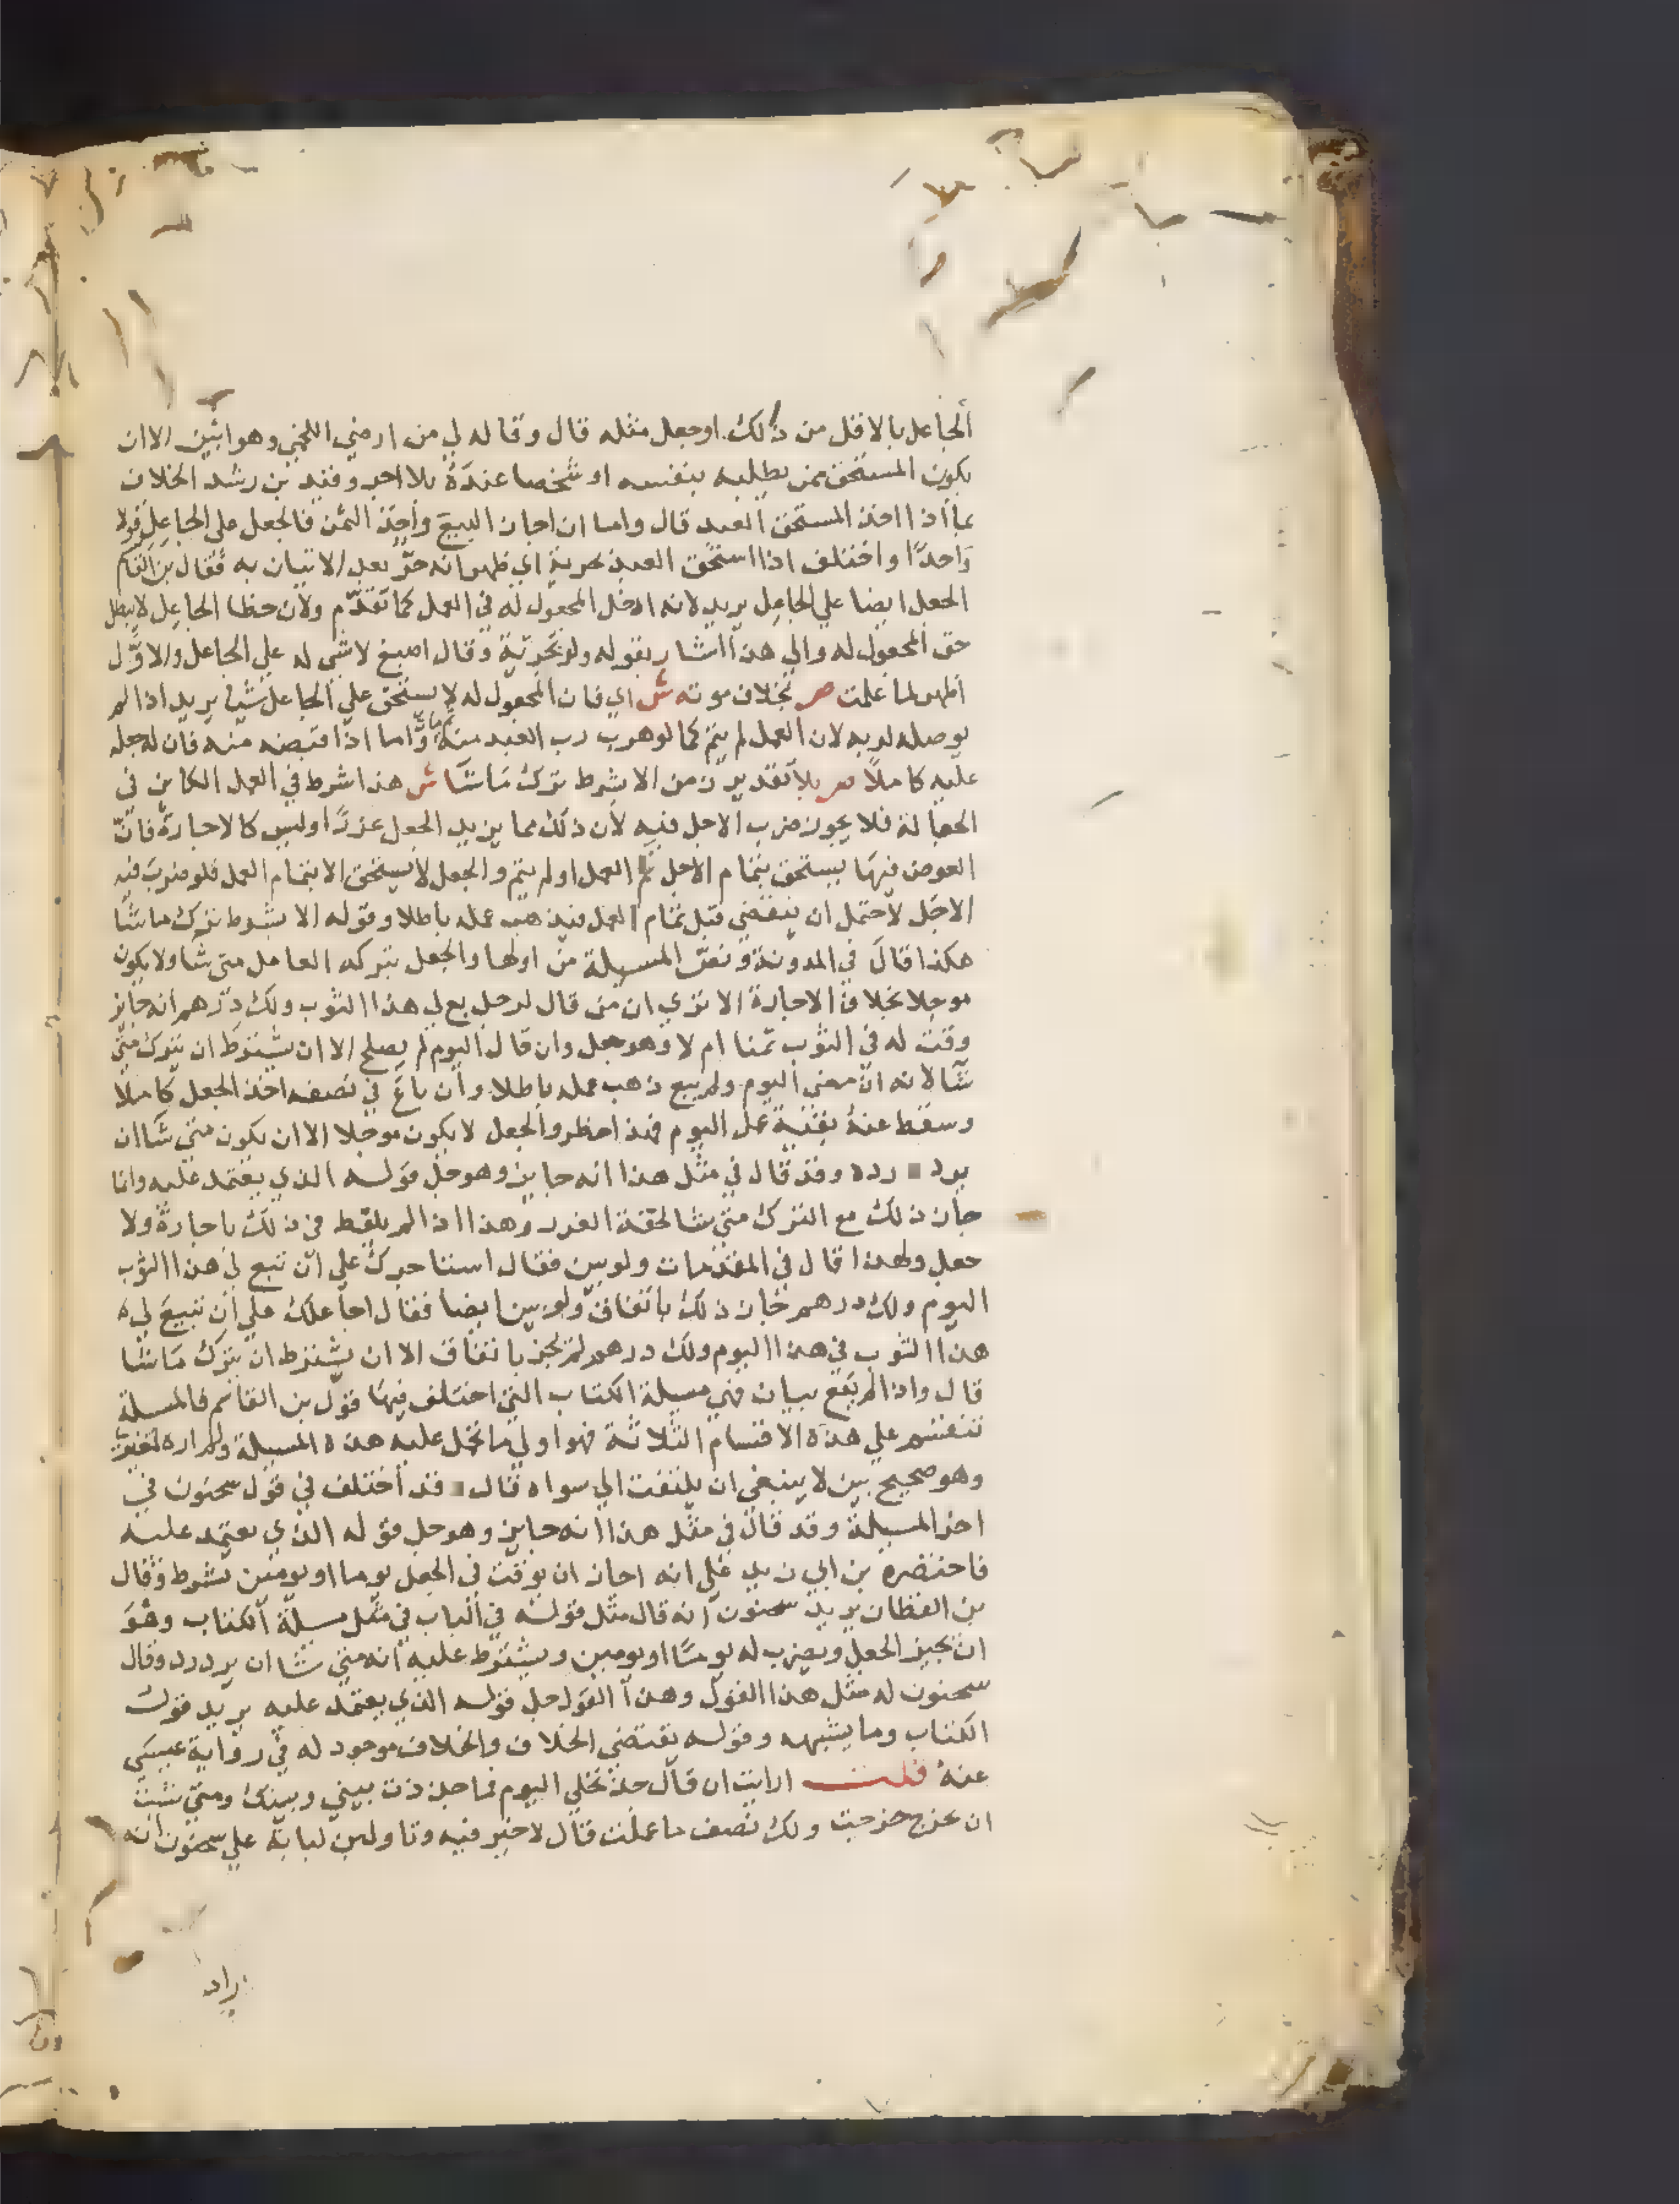 الجاعل بالاقل من ذلك اوجعل مثله قال وقاله لي من ارضي اللخمي وهو ابين الا ان
يكون المستحق ممن يطلبه بنفسه او شخصا عنده بلا اجر وقيد بن رشد الخلاف
بما اذا اخذ المستحق العبد قال واما ان اجاز البيع واخذ الثمن فالجعل على الجاعل قولا
واحدا واختلف اذا استحق العبد بحرية اي ظهر انه حر بعد الاتيان به فقال بن القاسم
الجعل ايضا علي الجاعل يريد لانه ادخل المجعول له في العمل كما تقدم ولان خطا الجاعل لا يبطل
حق المجعول له والي هذا اشار بقوله ولو بحرية وقال اصبغ لا شي له علي الجاعل والاول
اظهر لما علمت ص بخلاف موته ش اي فان المجعول له لا يستحق علي الجاعل شيا يريد اذا لم
يوصله لربه لان العمل لم يتم كما لو هرب رب العبد منه واما اذا قبضه منه فان له جعله
عليه كاملا ص بلا تقدير زمن الا بشرط ترك متا شا ش هذا شرط في العمل الكاين في
الجعالة فلا يجوز ضرب الاجل فيه لان ذلك مما يزيد الجعل غررا وليس كالاجارة فان
العوض فيها يستحق بتمام الاجل تم العمل او لم يتم والجعل لا يستحق الا بتمام العمل فلو ضرب فيه
الاجل لاحتمل ان ينقضي قبل تمام العمل فيذهب عمله باطلا وقوله الا بشرط ترك متا شا
هكذا قال في المدونة ونص المسيلة من اولها والجعل يتركه العامل متى شا ولا يكون
موجلا بخلاف الاجارة الا تري ان من قال لرجل بع لي هذا الثوب ولك درهم انه جايز
وقت له في الثوب ثمنا ام لا وهو جعل وان قال اليوم لم يصلح الا ان يشترط ان يترك متي
شا لانه ان مضي اليوم ولم يبع ذهب عمله باطلا وان باع في نصفه اخذ الجعل كاملا
وسقط عنه بقية عمل اليوم فهذا خطر والجعل لا يكون موجلا الا ان يكون متي شا ان
يرد رده وقد قال في مثل هذا انه جايز وهو جل قوله الذي يعتمد عليه وانما
جاز ذلك مع الترك متي شا لخفة الغرر وهذا اذا لم يلفظ في ذلك باجارة ولا
جعل ولهذا قال في المقدمات ولو بين فقال استاجرك علي ان تبع لي هذا الثوب
اليوم ولك درهم جاز ذلك باتفاق ولو بين ايضا فقال اجاعلك علي ان تبيع لي
هذا الثوب في هذا اليوم ولك درهم لم يجز باتفاق الا ان يشترط ان يترك متا شا
قال واذا لم يقع بيان فهي مسيلة الكتاب التي اختلف فيها قول بن القاسم فالمسيلة
تنقسم علي هذه الاقسام الثلاثة فهو اولي ما تحمل عليه هذه المسيلة ولم اره لغيري
وهو صحيح بين لا ينبغي ان يلتفت الي سواه قال قد اختلف في قول سحنون في
اخر المسيلة وقد قال في مثل هذا انه جايز وهو جل قوله الذي يعتمد عليه
فاختصره بن ابي زيد علي انه اجاز ان يوقت في الجعل يوما او يومين بشرط وقال
بن القطان يريد سحنون انه قال مثل قوله في الباب في مثل مسيلة الكتاب وهو
ان يجيز الجعل ويضرب له يوما او يومين ويشترط عليه انه متي شا ان يرد رد وقال
سحنون له مثل هذا القول وهذا القول جل قوله الذي يعتمد عليه يريد قول
الكتاب وما يشبهه وقوله يقتضي الخلاف والخلاف موجود له في رواية عيسي
عنه قلت ارايت ان قال جذ نخلي اليوم فما جذذت بيني وبينك ومتي شيت
ان تخرج خرجت ولك نصف ما عملت قال لا خير فيه وتاول بن لبابة علي سحنون انه
اراد